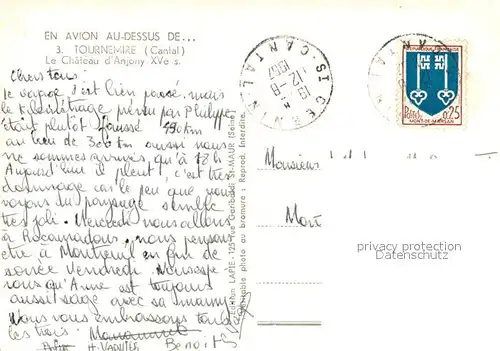 EN AVION AU-DESSUS DE...
3. TOURNEMIRE (Cantal)
Le Château d'Anjony XVe s.
Chers tous
le voyage s'est bien passé mais
le kilométrage prévu par Philippe
était plutôt faussé 490 km
au lieu de 300 km aussi nous
ne sommes arrivés qu'à 18h
Aujourd'hui il pleut, c'est très
dommage car le peu que nous
voyons du paysage semble
très joli. Mercredi nous allons
à Rocamadour.. nous pensons
être à Montreuil en fin de
soirée Vendredi. J'espère
vous qu'Anne est toujours
aussi sage avec sa mamy
Nous vous embrassons tous
les trois.
H. VAQUIER Benoit
Edition LAPIE - 125 rue Garibaldi St-MAUR (Seine)
Véritable photo au bromure : Reprod. Interdite.
ST-CERNIN CANTAL
19H
12-8
1967
REPUBLIQUE FRANCAISE
POSTES 0,25
MONT-DE-MARSAN
Monsieur
Mont
privacy protection
Datenschutz